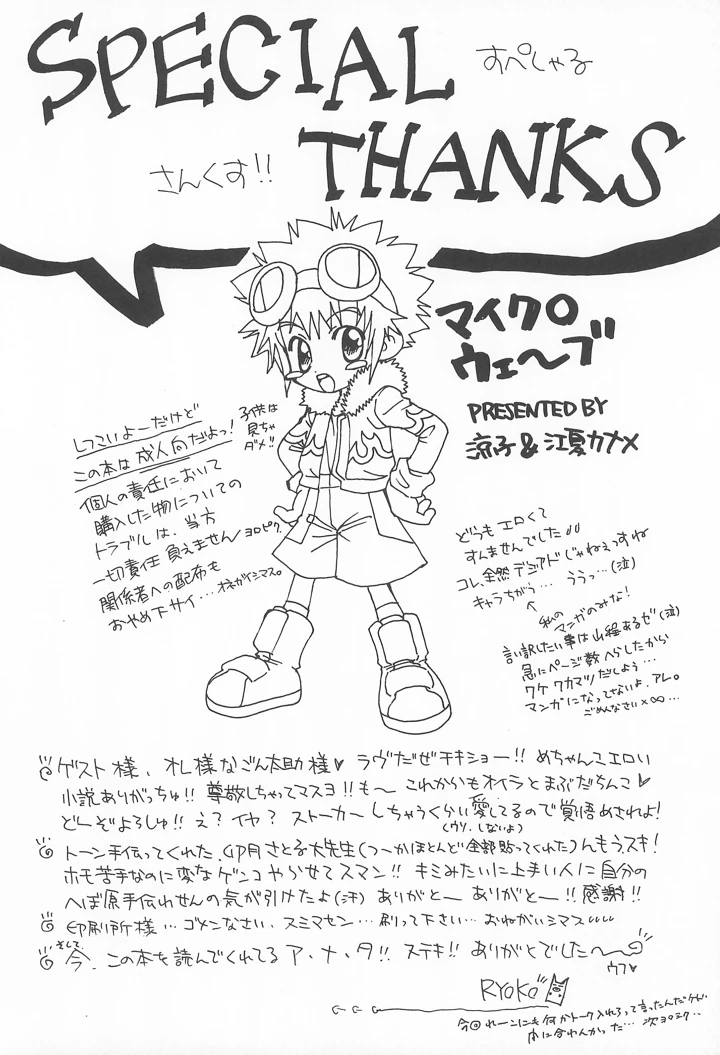 SPECIAL
すぺしゃる
さんくす!!
THANKS
マイクロ
ウェ〜ブ
PRESENTED BY
涼子&江夏カナメ
しつこいよーだけど
この本は成人向だよっ!
子供は
見ちゃ
ダメ!!
個人の責任において
購入した物についての
トラブルは、当方
一切責任負えません ヨロピク
関係者への配布も
おやめ下サイ…オネガイシマス。
どうもエロくて
すんませんでした
コレ全然デュアドじゃねぇっすね
キャラちがう… ううっ…(泣)
私の
マンガのみな!
言い訳したい事は山程あるぜ(泣)
急にページ数へらしたから
ワケワカマツだしよう…
マンガになってさないよ、アレ。
ごめんなさい×∞…
ゲスト様、オレ様なごん太助様♥ ラヴだぜチキショー!! めちゃんこエロい
小説ありがっちゅ!! 尊敬しちゃってマスヨ!!も〜 これからもオイラとまぶだちんこ♥
どーぞよろしゅ!! え? イヤ? ストーカーしちゃうくらい愛してるので覚悟めされよ!
(ウソ、しないよ)
トーン手伝ってくれた、卯月さとる大先生(つーかほとんど全部貼ってくれた)んもうスキ!
ホモ苦手なのに変なゲンコやらせてスマン!! キミみたいに上手い人に自分の
へぼ原手伝わせんの気が引けたよ(汗) ありがとー ありがとー!!感謝!!
印刷所様…ゴメンなさい、スミマセン…刷って下さい…おねがいシマス
そして、
今、この本を読んでくれてる ア・ナ・タ!! ステキ!! ありがとでした〜
ウフ♥
RYOKO
今回れーこにも何かトーク入れろって言ったんだケド、
間に合わんかった…次ヨロシク…